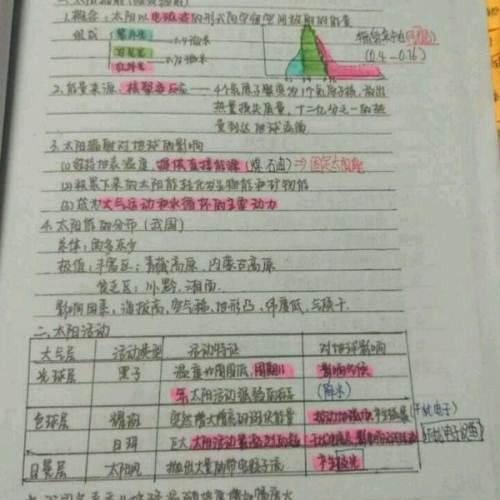 1.概念:太阳以电磁波的形式向宇宙空间放射的能量
组成 紫外光
可见光
红外光
能量集中在可见光
(0.4-0.76)
2.能量来源:核聚变反应——4个氢原子聚变为1个氦原子核,放出
热量损失质量,二十二亿分之一的热
量到达地球表面
3.太阳辐射对地球的影响
(1)维持地表温度,提供直接能源(煤 石油)⇒固定太阳能
(2)积累下来的太阳能转化为生物能和矿物能
(3)成为大气运动和水循环的主要动力
4.太阳能的分布(我国)
总体:西多东少
极值:丰富区:青藏高原、内蒙古高原
贫乏区:川黔、湘南
影响因素:海拔高,空气稀,地形凸,纬度低,
二、太阳活动
大气层 活动类型 活动特征 对地球影响
光球层 黑子 温度比周围低,周期11
年 太阳活动强弱标志
影响气候
(降水)
色球层 耀斑 突然增大增亮的斑状能量
(干扰电子)
日珥
日冕层 太阳风 抛出大量的带电粒子流 产生极光